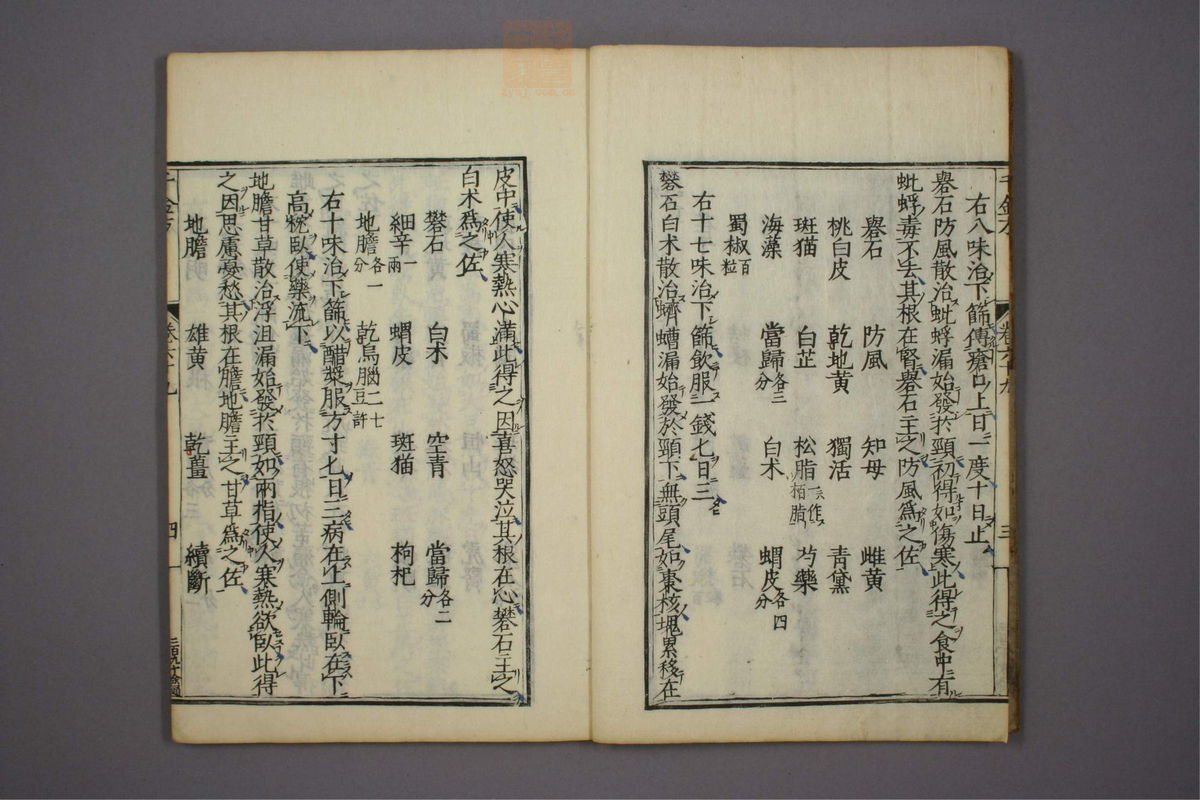 右八味治下篩傅瘡口上日一度十日止
礜石防風散治蚍蜉漏始發於頸初得如傷寒此得之食中有
蚍蜉毒不去其根在腎礜石主之防風爲之佐
礜石 防風 知母 雌黃
桃白皮 乾地黃 獨活 青黛
斑猫 白芷 松脂一作栢脂 芍藥
海藻 當歸各三分 白术 蝟皮各四分
蜀椒百粒
右十七味治下篩飲服一錢七日三
礬石白术散治蠐螬漏始發於頸下無頭尾如棗核塊累移在
皮中使人寒熱心滿此得之因喜怒哭泣其根在心礬石主之
白术爲之佐
礬石 白术 空青 當歸各二分
細辛一兩 蝟皮 斑猫 枸杞
地膽各一分 乾烏腦二七豆許
右十味治下篩以醋漿服方寸七日三病在上側輪臥在下
高枕臥使藥流下
地膽甘草散治浮沮漏始發於頸如兩指使人寒熱欲臥此得
之因思慮憂愁其根在膽地膽主之甘草爲之佐
地膽 雄黃 乾薑 續斷
千金方 卷六十九 四